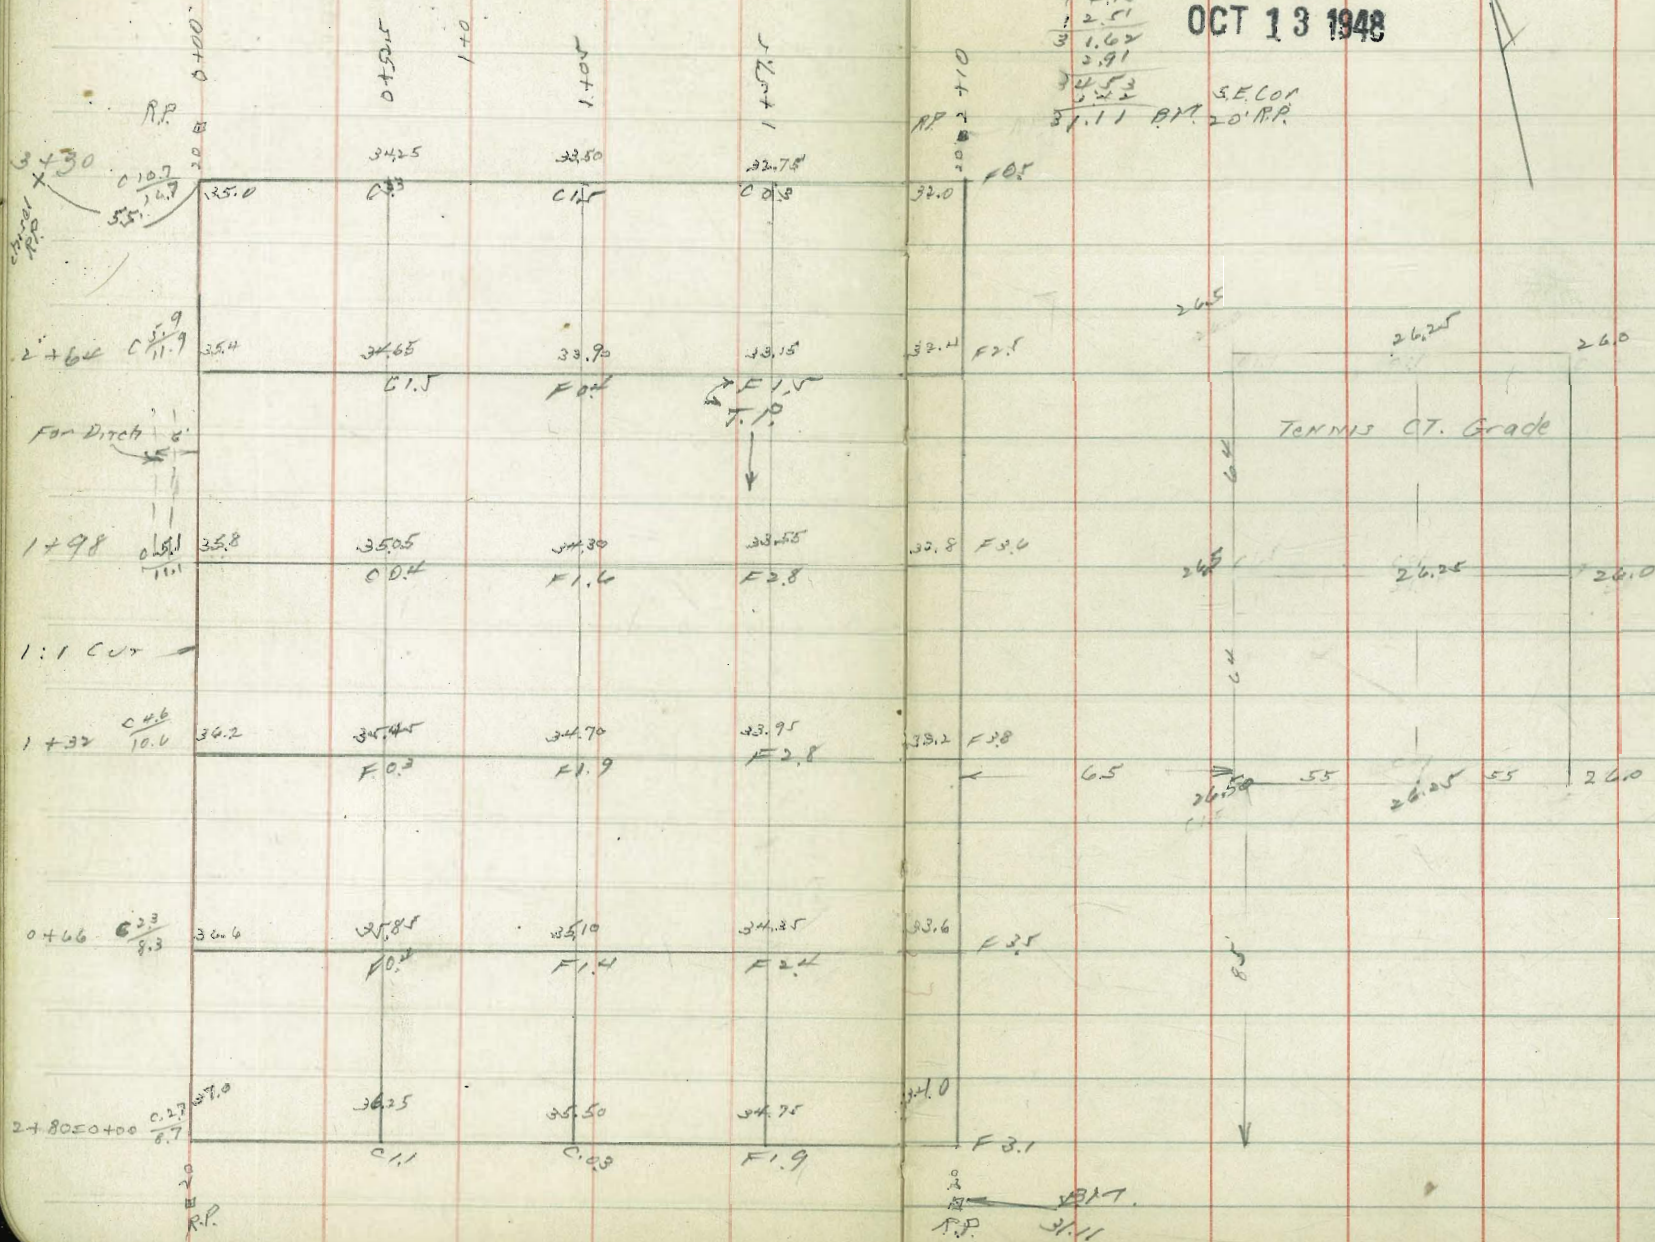 0+00
0+52.5
1+0
1+05
1+57.5
2+10
2.51
3 1.62
2.91
34.53
3.42
31.11 B.M. S.E. Cor. 20' R.P.
OCT 13 1948
R.P.
20
R.P.
20
3+30
C 10.7/16.7
55.
Chisel R.P.
35.0
34.25
33.50
C 1.5
32.75
C 0.3
32.0
F 0.5
2+64
C 5.9/11.9
35.4
34.65
C 1.5
33.90
F 0.4
33.15
F 1.5
T.P.
32.4
F 2.5
For Ditch
6'
1+98
C 5.1/11.1
35.8
35.05
C 0.4
34.30
F 1.6
33.55
F 2.8
32.8
F 3.6
1:1 Cut
1+32
C 4.6/10.6
36.2
35.45
F 0.3
34.70
F 1.9
33.95
F 2.8
33.2
F 3.8
0+66
C 2.3/8.3
36.6
35.85
F 0.4
35.10
F 1.4
34.35
F 2.4
33.6
F 3.5
2+80=0+00
C 2.7/8.7
37.0
36.25
C 1.1
35.50
C 0.3
34.75
F 1.9
34.0
F 3.1
20
R.P.
20
R.P.
B.M.
31.11
26.5
26.25
26.0
Tennis CT. Grade
64
26.5
26.25
26.0
64
65
26.50
55
26.25
55
26.0
85